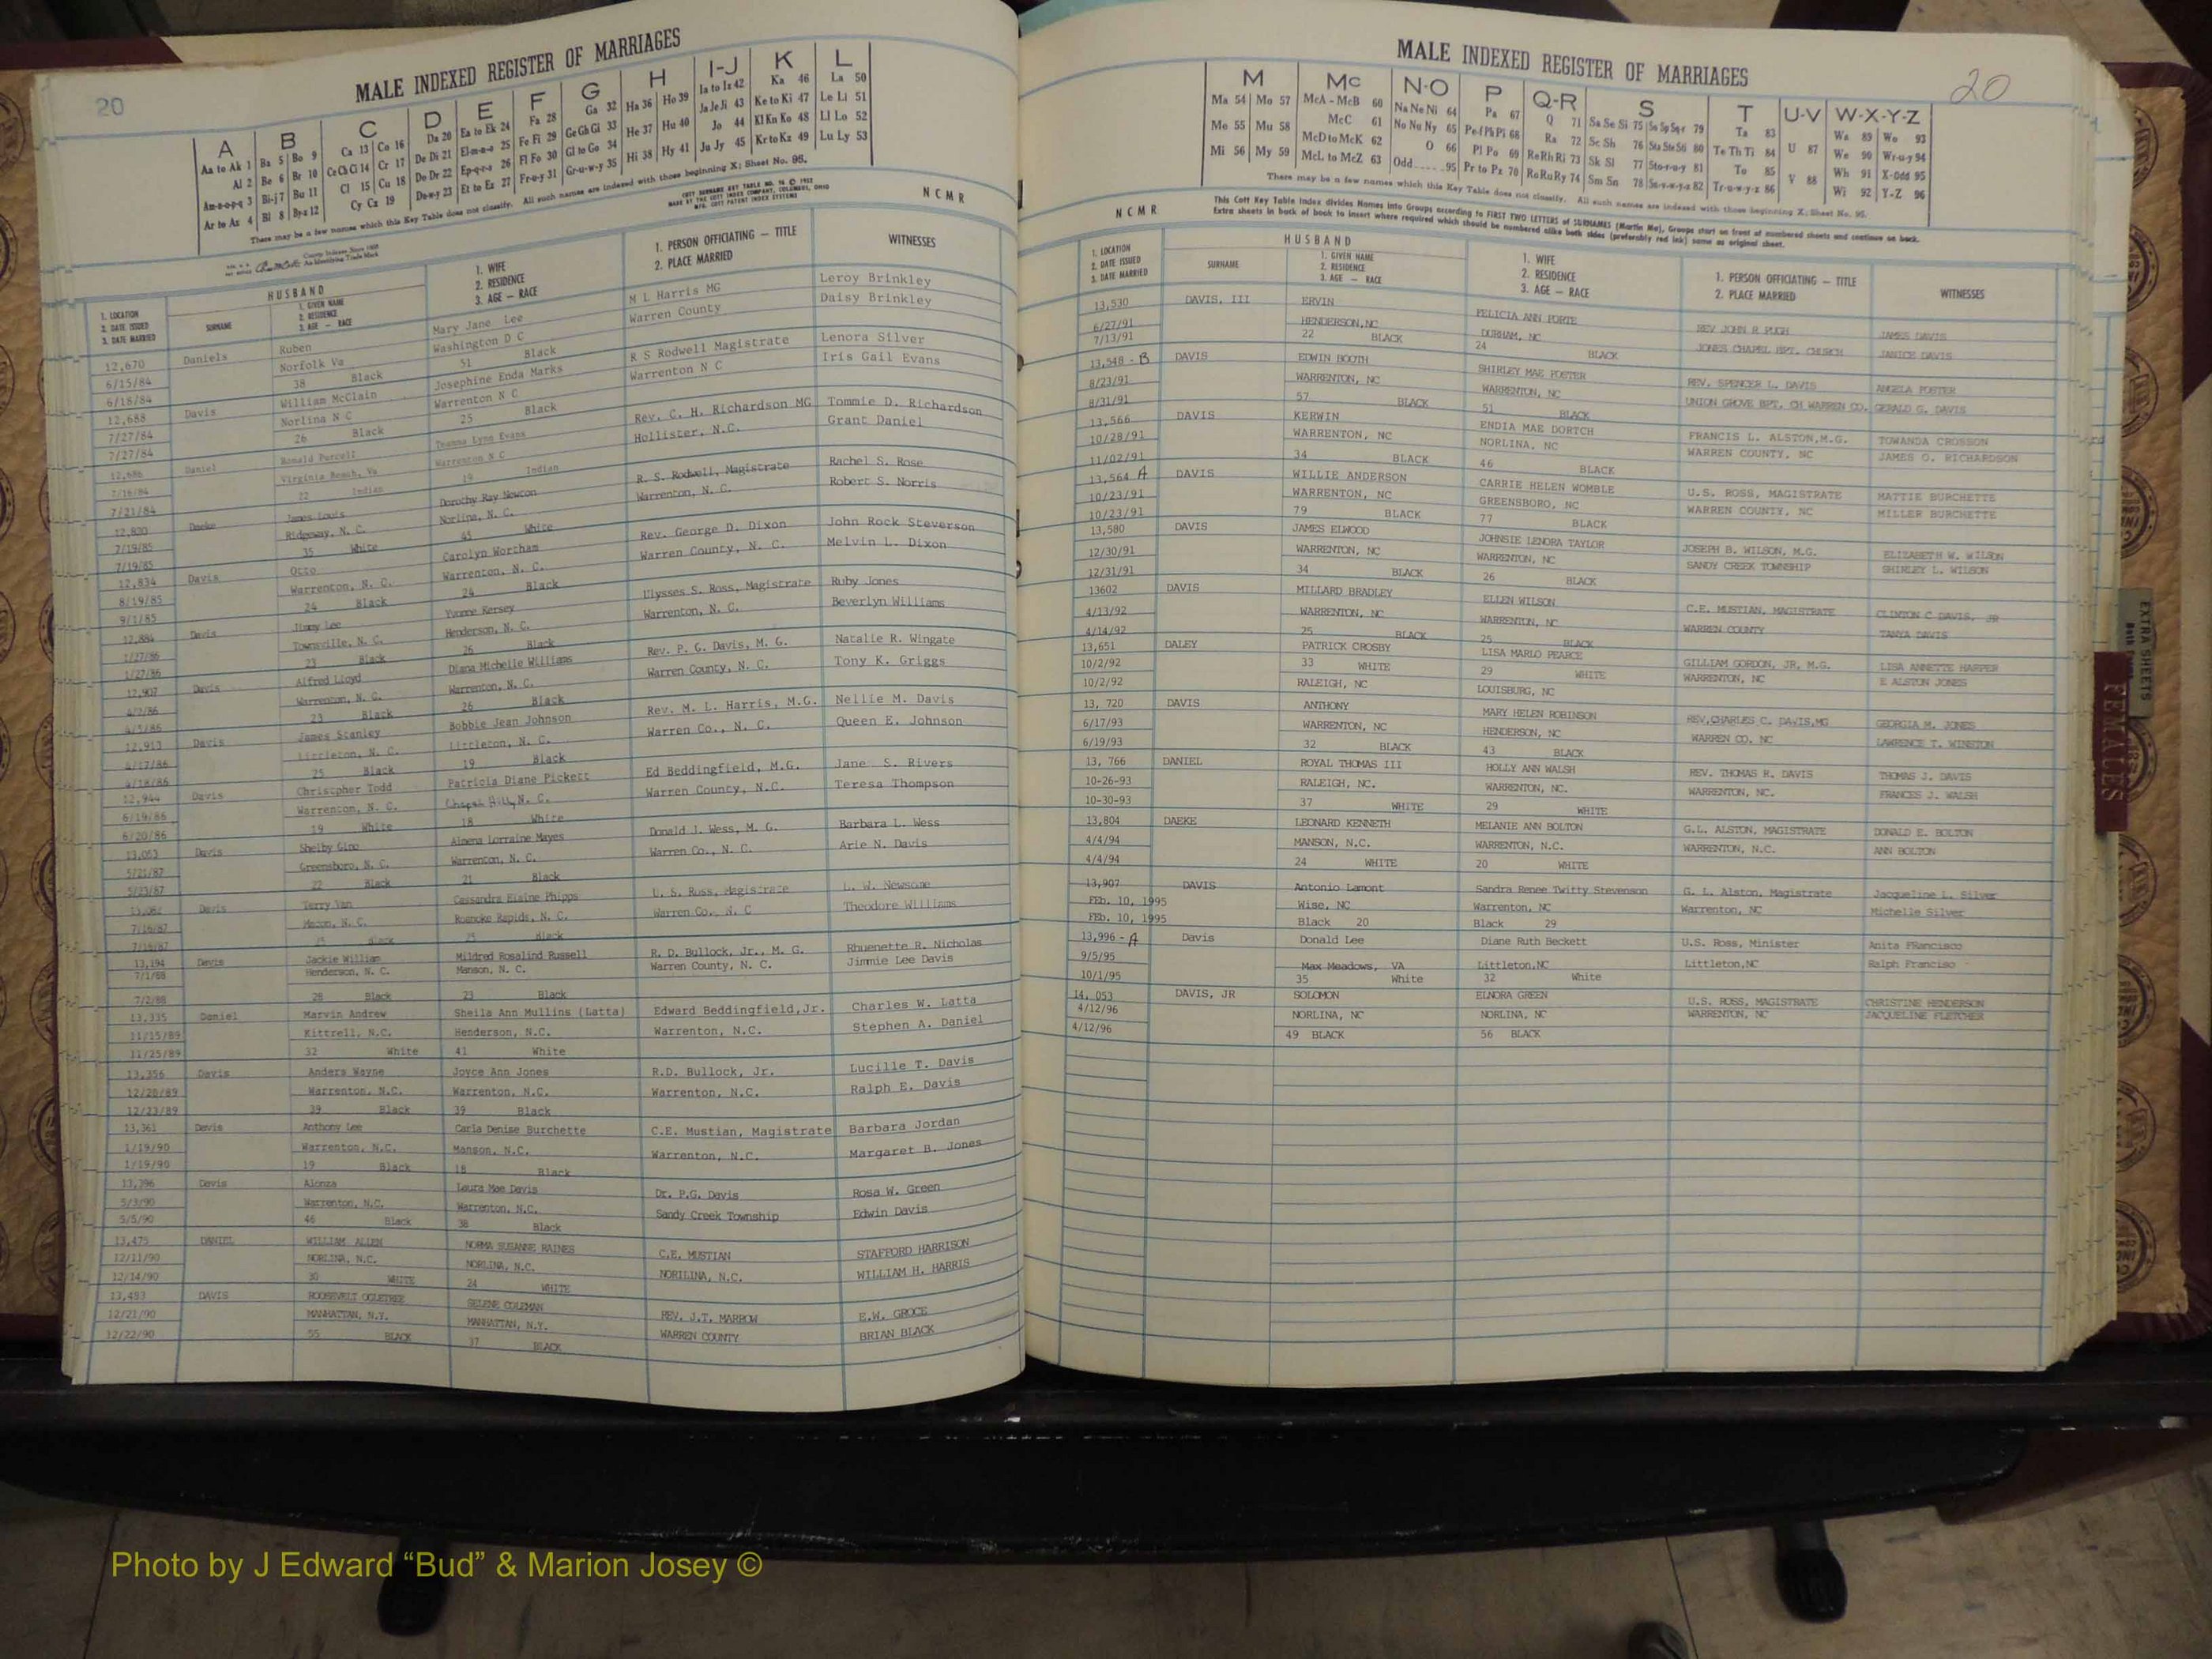 20
MALE INDEXED REGISTER OF MARRIAGES
A B C D E F G H I-J K L
Aa to Ak 1 Ba 5 Bo 9 Ca 13 Co 16 Da 20 Ea to Ek 24 Fa 28 Ga 32 Ha 36 Ho 39 Ia to Iz 42 Ka 46 La 50
Al 2 Be 6 Br 10 Ce Ch Ci 14 Cr 17 De Di 21 El-m-n-o 25 Fe Fi 29 Ge Gh Gi 33 He 37 Hu 40 Ja Je Ji 43 Ke to Ki 47 Le Li 51
Am-n-o-p-q 3 Bi-j 7 Bu 11 Cl 15 Cu 18 Do Dr 22 Ep-q-r-s 26 Fl Fo 30 Gl to Go 34 Hi 38 Hy 41 Jo 44 Kl Kn Ko 48 Ll Lo 52
Ar to Az 4 Bl 8 By-z 12 Cy Cz 19 Du-w-y 23 Et to Ez 27 Fr-u-y 31 Gr-u-w-y 35 Ju Jy 45 Kr to Kz 49 Lu Ly 53
There may be a few names which this Key Table does not classify. All such names are indexed with those beginning X; Sheet No. 95.
NCMR
HUSBAND
1. LOCATION 2. DATE ISSUED 3. DATE MARRIED
SURNAME
1. GIVEN NAME 2. RESIDENCE 3. AGE — RACE
1. WIFE 2. RESIDENCE 3. AGE — RACE
1. PERSON OFFICIATING — TITLE 2. PLACE MARRIED
WITNESSES
12,670 Daniels Ruben Mary Jane Lee M L Harris MG Leroy Brinkley
6/15/84 Norfolk Va Washington D C Warren County Daisy Brinkley
6/18/84 38 Black 51 Black
12,688 Davis William McClain Josephine Enda Marks R S Rodwell Magistrate Lenora Silver
7/27/84 Norlina N C Warrenton N C Warrenton N C Iris Gail Evans
7/27/84 26 Black 25 Black
12,686 Daniel Ronald Purcell Teanna Lynn Evans Rev. C. H. Richardson MG Tommie D. Richardson
7/16/84 Virginia Beach, Va Warrenton N C Hollister, N.C. Grant Daniel
7/21/84 22 Indian 19 Indian
12,820 Daeke James Louis Dorothy Ray Newton R. S. Rodwell, Magistrate Rachel S. Rose
7/19/85 Ridgeway, N. C. Norlina, N. C. Warrenton, N. C. Robert S. Norris
7/19/85 35 White 45 White
12,834 Davis Otto Carolyn Wortham Rev. George D. Dixon John Rock Steverson
8/19/85 Warrenton, N. C. Warrenton, N. C. Warren County, N. C. Melvin L. Dixon
9/1/85 24 Black 24 Black
12,884 Davis Jimmy Lee Yvonne Kersey Ulysses S. Ross, Magistrate Ruby Jones
1/27/86 Townsville, N. C. Henderson, N. C. Warrenton, N. C. Beverlyn Williams
1/27/86 23 Black 26 Black
12,907 Davis Alfred Lloyd Diana Michelle Williams Rev. P. G. Davis, M. G. Natalie R. Wingate
4/2/86 Warrenton, N. C. Warrenton, N. C. Warren County, N. C. Tony K. Griggs
4/5/86 23 Black 26 Black
12,913 Davis James Stanley Bobbie Jean Johnson Rev. M. L. Harris, M.G. Nellie M. Davis
4/17/86 Littleton, N. C. Littleton, N. C. Warren Co., N. C. Queen E. Johnson
4/18/86 25 Black 19 Black
12,944 Davis Christpher Todd Patricia Diane Pickett Ed Beddingfield, M.G. Jane S. Rivers
6/19/86 Warrenton, N. C. Chapel Hill, N. C. Warren County, N.C. Teresa Thompson
6/20/86 19 White 18 White
13,053 Davis Shelby Gino Almena Lorraine Mayes Donald J. Wess, M. G. Barbara L. Wess
5/21/87 Greensboro, N. C. Warrenton, N. C. Warren Co., N. C. Arie N. Davis
5/23/87 22 Black 21 Black
Davis Terry Van Cassandra Elaine Phipps U. S. Ross, Magistrate L. W. Newsome
7/16/87 Macon, N. C. Roanoke Rapids, N. C. Warren Co., N. C Theodore Williams
7/16/87 25 Black 25 Black
13,194 Davis Jackie William Mildred Rosalind Russell R. D. Bullock, Jr., M. G. Rhuenette R. Nicholas
7/1/88 Henderson, N. C. Manson, N. C. Warren County, N. C. Jimmie Lee Davis
7/2/88 28 Black 23 Black
13,335 Daniel Marvin Andrew Sheila Ann Mullins (Latta) Edward Beddingfield,Jr. Charles W. Latta
11/15/89 Kittrell, N.C. Henderson, N.C. Warrenton, N.C. Stephen A. Daniel
11/25/89 32 White 41 White
13,356 Davis Anders Wayne Joyce Ann Jones R.D. Bullock, Jr. Lucille T. Davis
12/20/89 Warrenton, N.C. Warrenton, N.C. Warrenton, N.C. Ralph E. Davis
12/23/89 39 Black 39 Black
13,361 Davis Anthony Lee Carla Denise Burchette C.E. Mustian, Magistrate Barbara Jordan
1/19/90 Warrenton, N.C. Manson, N.C. Warrenton, N.C. Margaret B. Jones
1/19/90 19 Black 18 Black
13,396 Davis Alonza Laura Mae Davis Dr. P.G. Davis Rosa W. Green
5/3/90 Warrenton, N.C. Warrenton, N.C. Sandy Creek Township Edwin Davis
5/5/90 46 Black 38 Black
13,475 DANIEL WILLIAM ALLEN NORMA SUSANNE RAINES C.E. MUSTIAN STAFFORD HARRISON
12/11/90 NORLINA, N.C. NORLINA, N.C. NORILINA, N.C. WILLIAM H. HARRIS
12/14/90 30 WHITE 24 WHITE
13,483 DAVIS ROOSEVELT OGLETREE SELENE COLEMAN REV. J.T. MARROW E.W. GROCE
12/21/90 MANHATTAN, N.Y. MANHATTAN, N.Y. WARREN COUNTY BRIAN BLACK
12/22/90 55 BLACK 37 BLACK
MALE INDEXED REGISTER OF MARRIAGES
20
M Mc N-O P Q-R S T U-V W-X-Y-Z
Ma 54 Mo 57 McA - McB 60 Na Ne Ni 64 Pa 67 Q 71 Sa Se Si 75 So Sp Sq-r 79 Ta 83 Wa 89 Wo 93
Me 55 Mu 58 McC 61 No Nu Ny 65 Pe-f Ph Pi 68 Ra 72 Sc Sh 76 Sta Ste Sti 80 Te Th Ti 84 U 87 We 90 Wr-u-y 94
Mi 56 My 59 McD to McK 62 O 66 Pl Po 69 Re Rh Ri 73 Sk Sl 77 Sto-r-u-y 81 To 85 Wh 91 X-Odd 95
McL to McZ 63 Odd 95 Pr to Pz 70 Ro Ru Ry 74 Sm Sn 78 Su-v-w-y-z 82 Tr-u-w-y-z 86 V 88 Wi 92 Y-Z 96
There may be a few names which this Key Table does not classify. All such names are indexed with those beginning X; Sheet No. 95.
This Cott Key Table Index divides Names into Groups according to FIRST TWO LETTERS of SURNAMES (Martin Ma), Groups start on front of numbered sheets and continue on back.
Extra sheets in back of book to insert where required which should be numbered alike both sides (preferably red ink) same as original sheet.
NCMR
HUSBAND
1. LOCATION 2. DATE ISSUED 3. DATE MARRIED
SURNAME
1. GIVEN NAME 2. RESIDENCE 3. AGE — RACE
1. WIFE 2. RESIDENCE 3. AGE — RACE
1. PERSON OFFICIATING — TITLE 2. PLACE MARRIED
WITNESSES
13,530 DAVIS, III ERVIN FELICIA ANN FORTE REV JOHN R PUGH JAMES DAVIS
6/27/91 HENDERSON,NC DURHAM, NC JONES CHAPEL BPT. CHURCH JANICE DAVIS
7/13/91 22 BLACK 24 BLACK
13,548 - B DAVIS EDWIN BOOTH SHIRLEY MAE FOSTER REV. SPENCER L. DAVIS ANGELA FOSTER
8/23/91 WARRENTON, NC WARRENTON, NC UNION GROVE BPT. CH WARREN CO. GERALD G. DAVIS
8/31/91 57 BLACK 51 BLACK
13,566 DAVIS KERWIN ENDIA MAE DORTCH FRANCIS L. ALSTON,M.G. TOWANDA CROSSON
10/28/91 WARRENTON, NC NORLINA, NC WARREN COUNTY, NC JAMES O. RICHARDSON
11/02/91 34 BLACK 46 BLACK
13,564 A DAVIS WILLIE ANDERSON CARRIE HELEN WOMBLE U.S. ROSS, MAGISTRATE MATTIE BURCHETTE
10/23/91 WARRENTON, NC GREENSBORO, NC WARREN COUNTY, NC MILLER BURCHETTE
10/23/91 79 BLACK 77 BLACK
13,580 DAVIS JAMES ELWOOD JOHNSIE LENORA TAYLOR JOSEPH B. WILSON, M.G. ELIZABETH W. WILSON
12/30/91 WARRENTON, NC WARRENTON, NC SANDY CREEK TOWNSHIP SHIRLEY L. WILSON
12/31/91 34 BLACK 26 BLACK
13602 DAVIS MILLARD BRADLEY ELLEN WILSON C.E. MUSTIAN, MAGISTRATE CLINTON C DAVIS, JR
4/13/92 WARRENTON, NC WARRENTON, NC WARREN COUNTY TANYA DAVIS
4/14/92 25 BLACK 25 BLACK
13,651 DALEY PATRICK CROSBY LISA MARLO PEARCE GILLIAM GORDON, JR, M.G. LISA ANNETTE HARPER
10/2/92 33 WHITE 29 WHITE WARRENTON, NC E ALSTON JONES
10/2/92 RALEIGH, NC LOUISBURG, NC
13, 720 DAVIS ANTHONY MARY HELEN ROBINSON REV.CHARLES C. DAVIS,MG GEORGIA M. JONES
6/17/93 WARRENTON, NC HENDERSON, NC WARREN CO. NC LAWRENCE T. WINSTON
6/19/93 32 BLACK 43 BLACK
13, 766 DANIEL ROYAL THOMAS III HOLLY ANN WALSH REV. THOMAS R. DAVIS THOMAS J. DAVIS
10-26-93 RALEIGH, NC. WARRENTON, NC. WARRENTON, NC. FRANCES J. WALSH
10-30-93 37 WHITE 29 WHITE
13,804 DAEKE LEONARD KENNETH MELANIE ANN BOLTON G.L. ALSTON, MAGISTRATE DONALD E. BOLTON
4/4/94 MANSON, N.C. WARRENTON, N.C. WARRENTON, N.C. ANN BOLTON
4/4/94 24 WHITE 20 WHITE
13,907 DAVIS Antonio Lamont Sandra Renee Twitty Stevenson G. L. Alston, Magistrate Jacqueline L. Silver
FEb. 10, 1995 Wise, NC Warrenton, NC Warrenton, NC Michelle Silver
FEb. 10, 1995 Black 20 Black 29
13,996 - A Davis Donald Lee Diane Ruth Beckett U.S. Ross, Minister Anita FRancisco
9/5/95 Max Meadows, VA Littleton,NC Littleton,NC Ralph Franciso
10/1/95 35 White 32 White
14, 053 DAVIS, JR SOLOMON ELNORA GREEN U.S. ROSS, MAGISTRATE CHRISTINE HENDERSON
4/12/96 NORLINA, NC NORLINA, NC WARRENTON, NC JACQUELINE FLETCHER
4/12/96 49 BLACK 56 BLACK
EXTRA SHEETS
FEMALES
Photo by J Edward “Bud” & Marion Josey ©